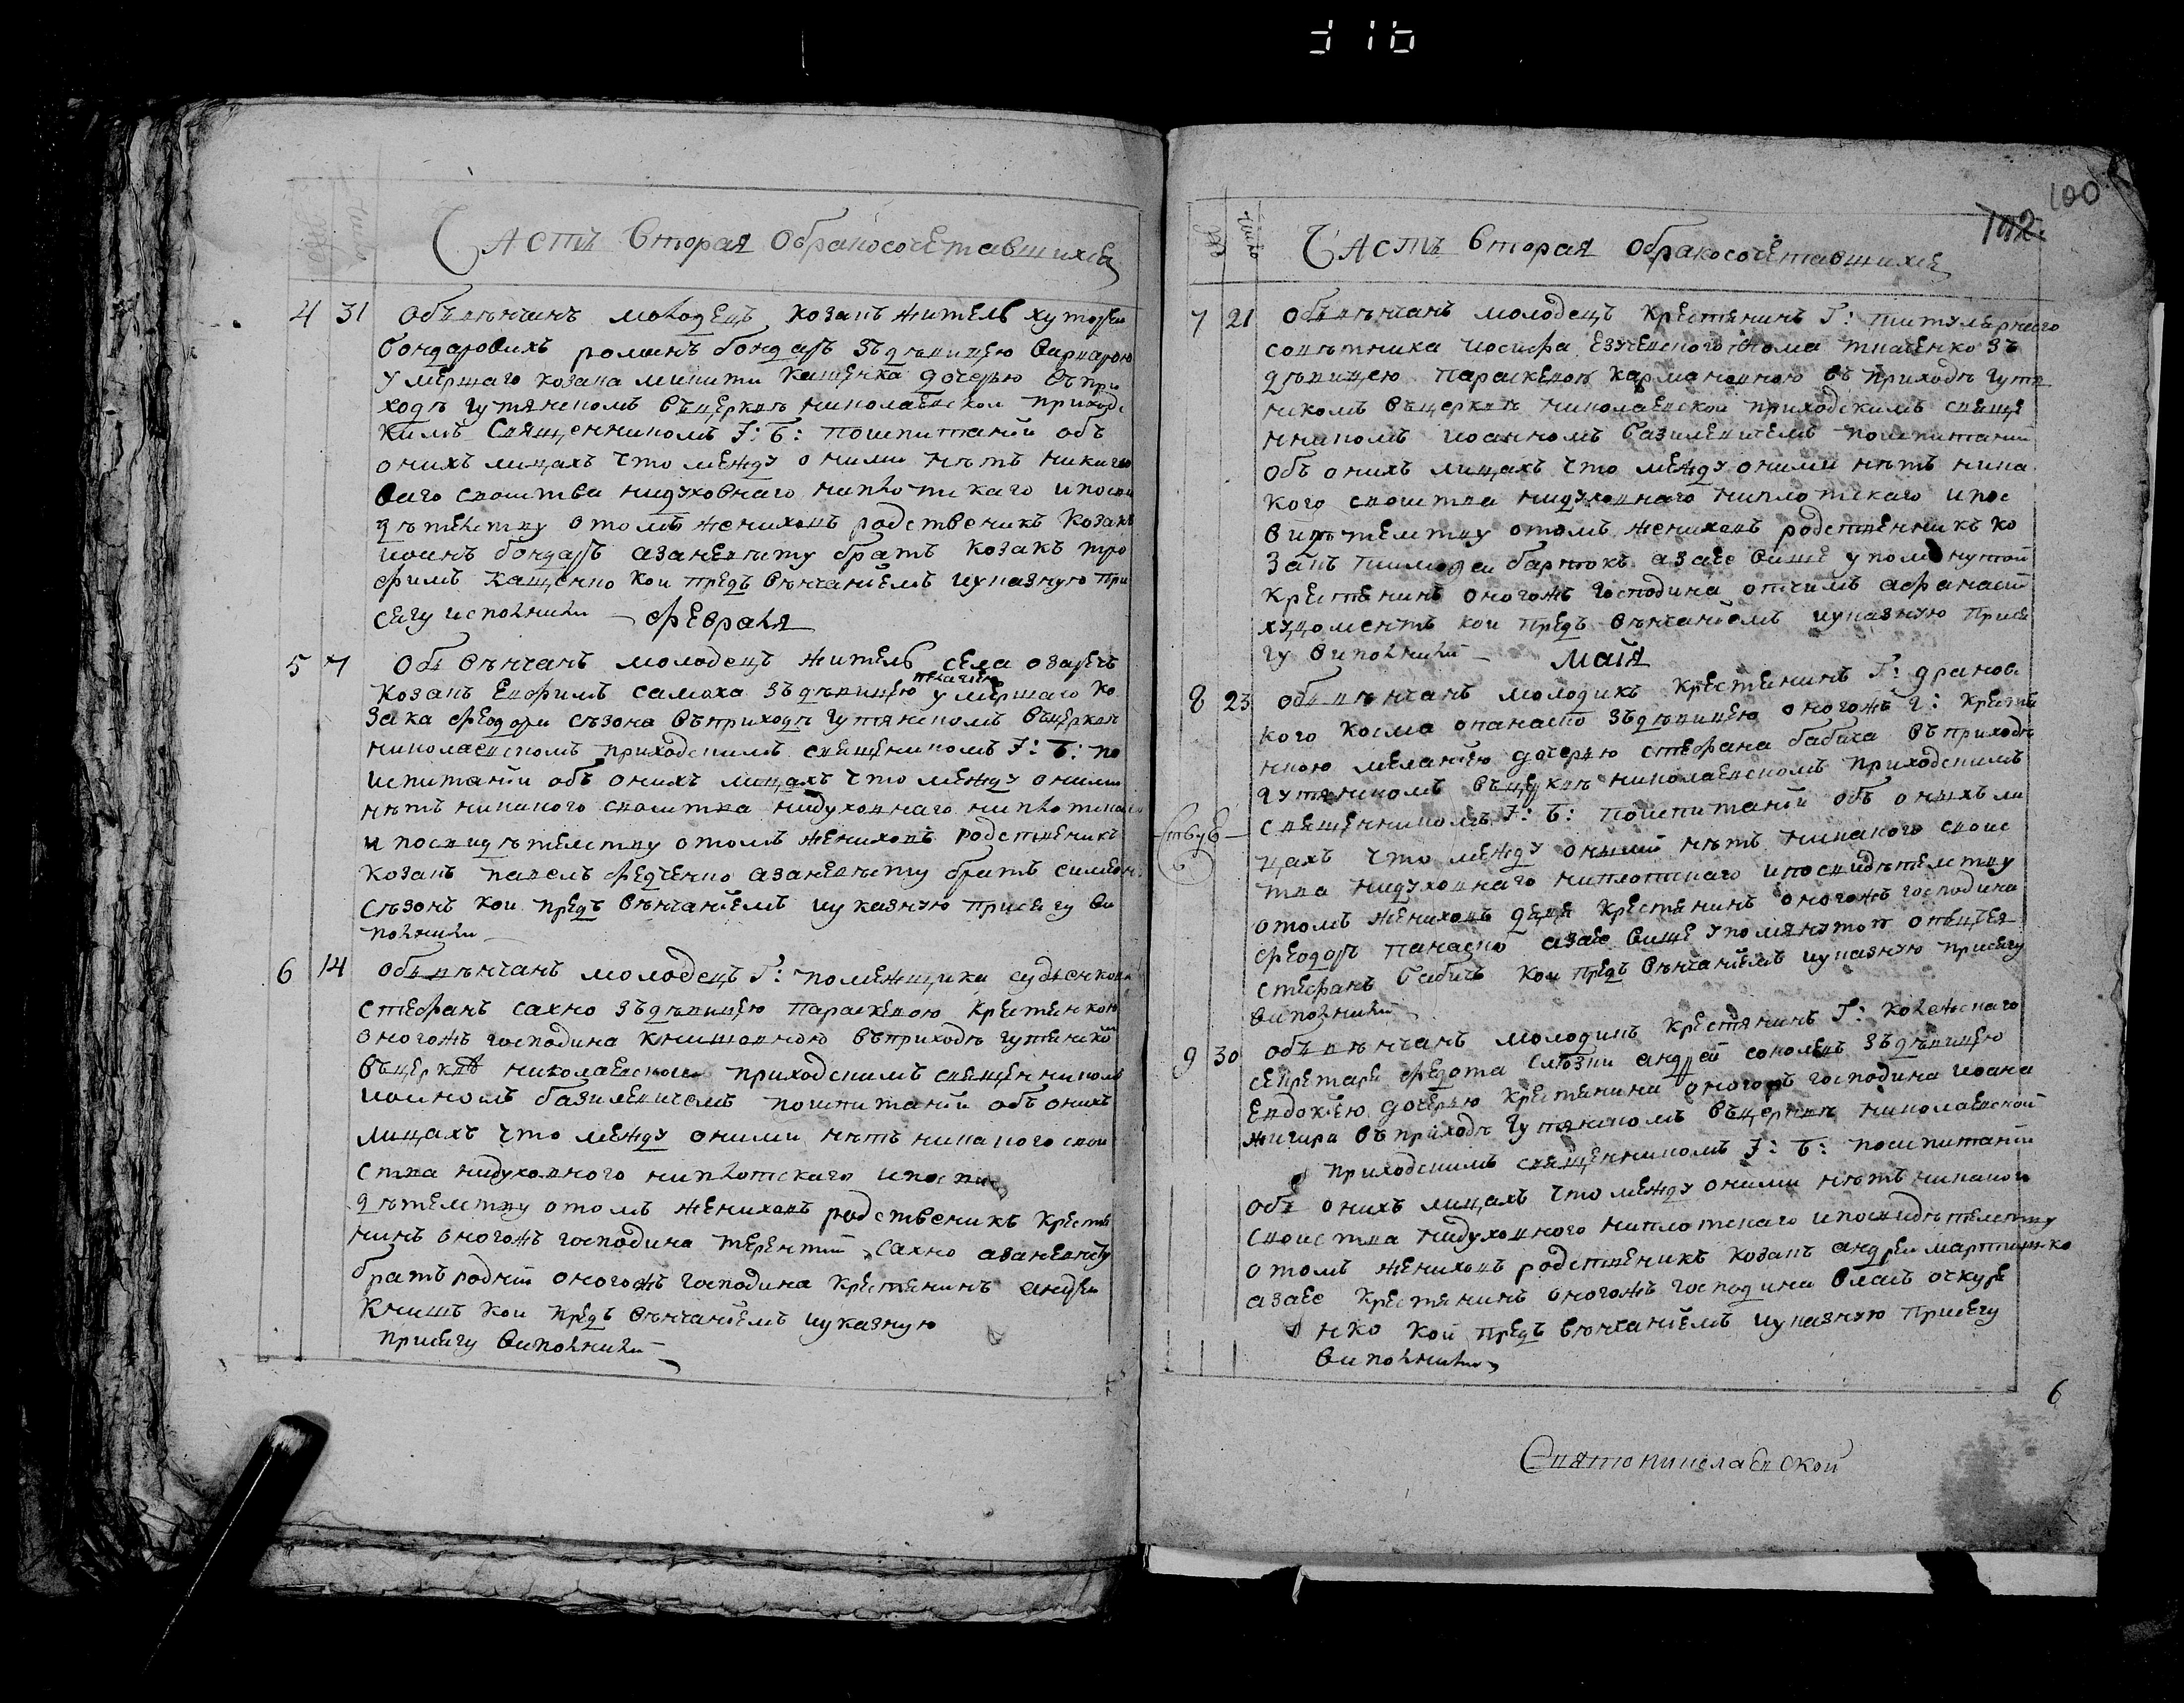 316
Часть вторая обракосочетавшихся
4 31 Обвѣнчанъ молодецъ козакъ житель хуторы
бондаровихъ романъ бондарь здѣвицею варварою
умершаго козака микити кащенка дочерью въ при
ходѣ гутянскомъ въ церквѣ николаевской приход
кимъ Священникомъ І: Б: поиспитаніи объ
онихъ лицахъ что между оними нѣтъ никако
ваго своитва нидуховнаго ниплотскаго ипосви
дѣтелству отомъ жениховъ родственикъ козакъ
иванъ бондарь азаневѣсту братъ козакъ тро
фимъ кащенко кои предъ вѣнчаніемъ иуказную при
сягу исполнили – февраля
5 7 Обвѣнчанъ молодецъ житель села озарич
козакъ Евфимъ самоха здѣвицею пелагіею умершаго ко
зака феодора сѣзона въ приходѣ гутянскомъ въ церквѣ
николаевскомъ приходскимъ священикомъ І: Б: по
испитаніи объ онихъ лицахъ что между оними
нѣтъ никакого своитва нидуховнаго ниплотскаго
и посвидѣтелству отомъ жениховъ родственикъ
козакъ павелъ федченко азаневѣсту братъ симеон
сѣзонъ кои предъ вѣнчаніемъ иуказную присягу ви
полнили
6 14 Обвѣнчанъ молодецъ Г: помещика судьенкова
стефанъ сахно здѣвицею параскевою крестянкою
оногожъ господина книшовною въ приходѣ гутянской
въ церквѣ николаевскои приходскимъ священникомъ
иоаномъ базилевичемъ поиспитаніи объ онихъ
лицахъ что между оними нѣтъ никакого свои
ства нидуховного ниплотскаго ипосви
дѣтелству отомъ жениховъ родственикъ крестя
нинъ оногожъ господина терентий сахно азаневѣсту
братъ родній оногожъ господина крестянинъ андреи
книшъ кои предъ вѣнчаніемъ иуказную
присягу виполнили
102 100
Часть вторая обракосочетавшихся
7 21 Обвѣнчанъ молодецъ крестянинъ Г: титулярнаго
совѣтника иосифа езучевского фома ткаченко зъ
дѣвицею параскевою кармановною въ приходѣ гутя
нскомъ въ церквѣ николаевской приходскимъ свяще
нникомъ иоанномъ базилевичемъ поиспитаніи
объ онихъ лицахъ что между оними нѣтъ ника
кого своитва нидуховнаго ниплотскаго ипос
видѣтелству отомъ жениховъ родственникъ ко
закъ тимофеи бартокъ азаее више упомянутой
крестянинъ оногожъ господина отчимъ афанасій
кои предъ вѣнчаніемъ иуказную прися
гу виполнили – Мaiя
8 23 обвѣнчанъ молодикъ крестянинъ Г: дранов
кого косма опанаско здѣвицею оногожъ г: крестя
нкою меланіею дочерью стефана бабича въ приходѣ
гутянскомъ въ церквѣ николаевскомъ приходскимъ
священникомъ І: Б: поиспитаніи объ оныхъ ли
цахъ что между оными нѣтъ никакого своис
тва нидуховнаго ниплотскаго ипосвидѣтелству
отомъ жениховъ дядя крестянинъ оногожъ господина
феодоръ панаско азаее више упомянутои отецъ ея
стефанъ бабичъ кои предъ вѣнчаніемъ иуказную присягу
виполнили
9 30 обвѣнчанъ молодикъ крестянинъ Г: колежскаго
секретаря федота слѣзки андрей соколецъ здѣвицею
евдокіею дочерью крестянина оногожъ господина иоана
жигира въ приходѣ гутянскомъ въ церквѣ николаевской
приходскимъ священникомъ І: Б: поиспитаніи
объ онихъ лицахъ что между оними нѣтъ никакого
своиства нидуховного ниплотскаго ипосвидѣтелству
отомъ жениховъ родственикъ козакъ андреи мартиненко
азаее крестянинъ оногожъ господина власъ очкуре
нко кои предъ вѣнчаніемъ иуказную присягу
виполнили
6
Святониколаевской